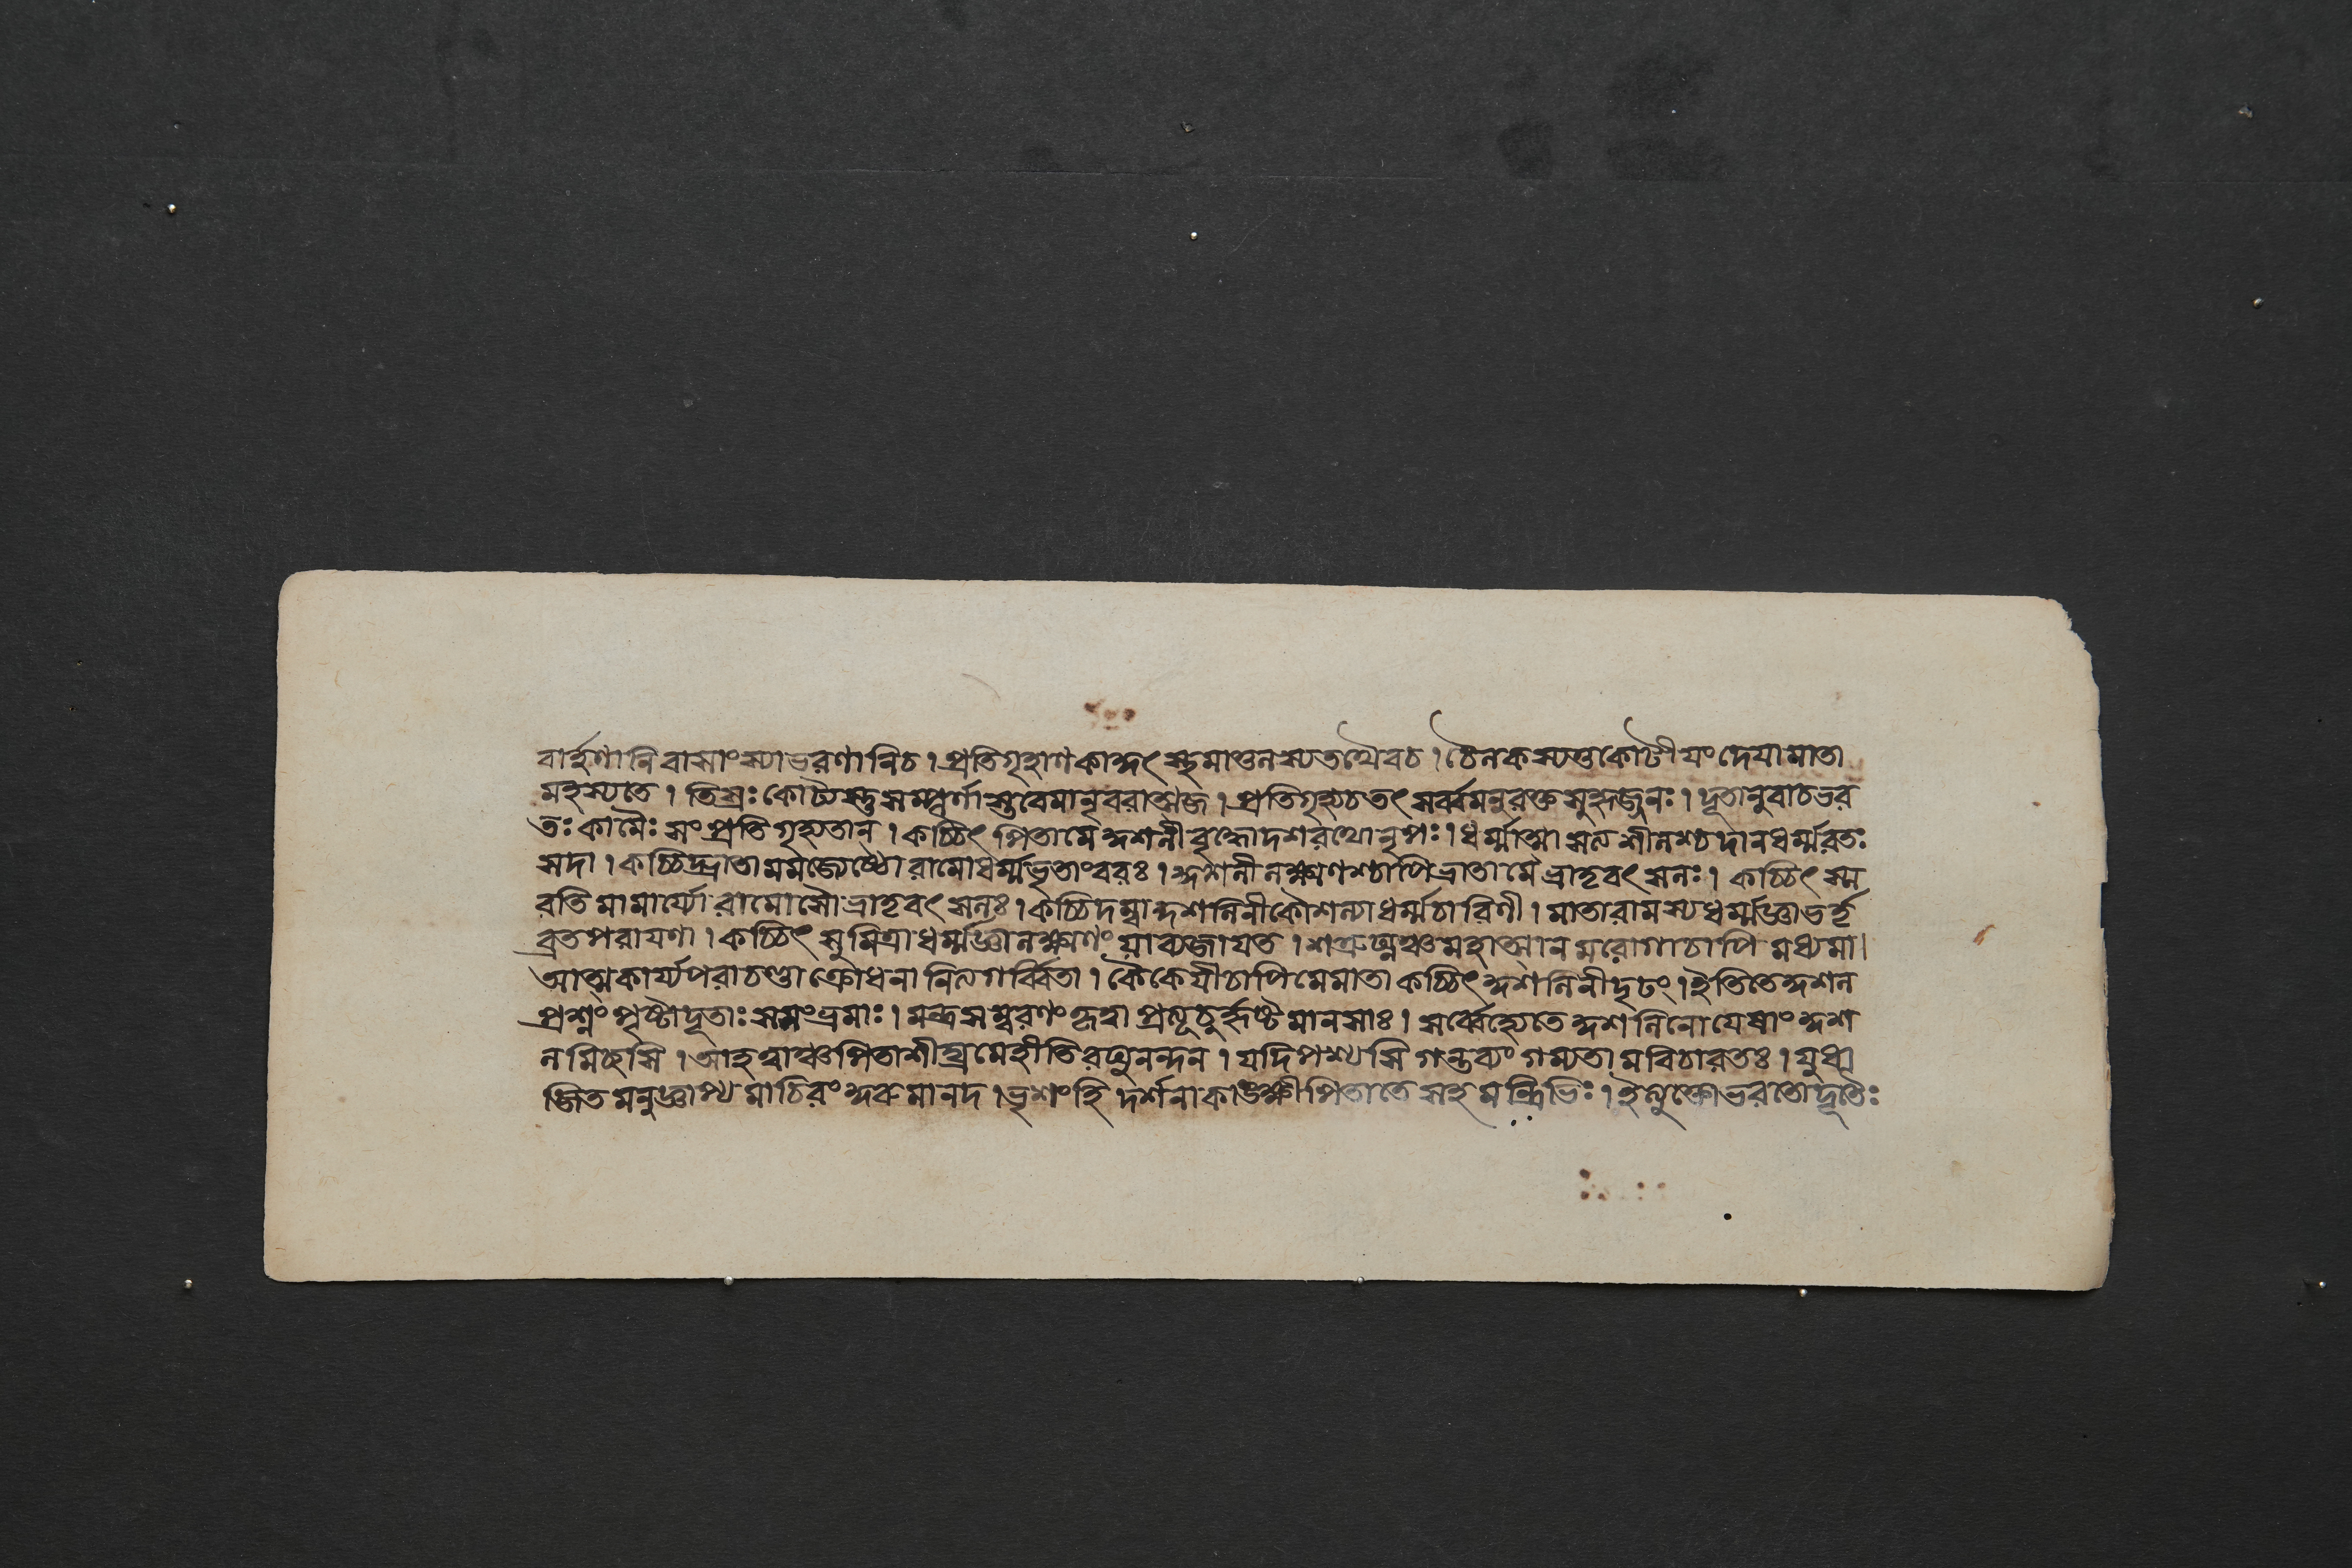 বার্হণানি বাসাংস্যাভরণানিচ। প্রতিগৃহাণ কাকুৎস্থ মাতুলস্যতথৈবচ। চৈলকস্যতু কোটীযং দেযা মাতা
মহস্যতে। তিস্রঃ কোট্যস্তু সম্পূর্ণাস্তবেমা নৃবরাত্মজ। প্রতিগৃহ্যচতৎ সর্ব্বমনুরক্ত সুহৃজ্জনঃ। দূতানুবাচভর
তঃ কামৈঃ সংপ্রতিগৃহ্যতান্। কচ্চিৎ পিতামে কুশলী বৃদ্ধোদশরথোনৃপঃ। ধর্ম্মাত্মা সত্যশীলশ্চ দানধর্ম্মরতঃ
সদা। কচ্চিদ্ভ্রাতা মমজ্যেষ্ঠো রামোধর্ম্মভৃতাংবরঃ। কুশলী লক্ষ্মণশ্চাপি ভ্রাতামে ভ্রাতৃবৎসলঃ। কচ্চিৎ স্ম
রতি মামার্য্যো রামোসৌ ভ্রাতৃবৎসলঃ। কচ্চিদম্বা কুশলিনী কৌশল্যা ধর্ম্মচারিণী। মাতা রামস্য ধর্ম্মজ্ঞা ভর্ত্তৃ
ব্রতপরাযণা। কচ্চিৎ সুমিত্রা ধর্ম্মজ্ঞা লক্ষ্মণং যাব্যজাযত। শত্রুঘ্নঞ্চ মহাত্মান মরোগাচাপি মধ্যমা।
আত্মকার্য্যপরা চণ্ডা ক্রোধনা নিত্যগর্ব্বিতা। কৈকেযীচাপি মেমাতা কচ্চিৎ কুশলিনী দৃঢং। ইতিতে কুশল
প্রশ্নং পৃষ্টাদূতাঃ সসংভ্রমাঃ। মন্ত্রসম্বরণং কৃত্বা প্রত্যূচুর্হৃষ্টমানসাঃ। সর্ব্বেহ্যেতে কুশলিনো যেষাং কুশ
লমিছসি। আহ ত্বাঞ্চ পিতা শীঘ্রমেহীতি রঘুনন্দন। যদি পশ্যসি গন্তব্যং গম্যতামবিচারতঃ। যুধা
জিতমনুজ্ঞাপ্য মাচিরং কুরুমানদ। ভৃশংহি দর্শনাকাঙ্ক্ষী পিতাতে সহ মন্ত্রিভিঃ। ইত্যুক্তোভরতোদূতৈঃ